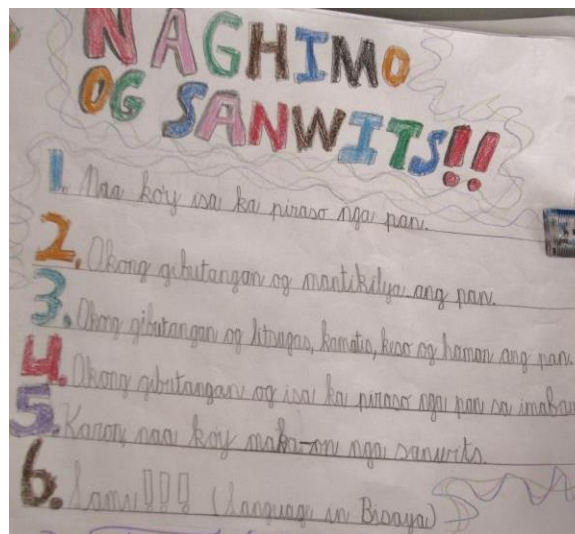 NAGHIMO
OG SANWITS!!
1. Naa koy isa ka piraso nga pan.
2. Akong gibutangan og mantikilya ang pan.
3. Akong gibutangan og litsugas, kamatis, keso og hamon ang pan.
4. Akong gibutangan og isa ka piraso nga pan sa imabaw
5. Karon naa koy maka-on nga sanwits.
6. Lami!!! (Language in Bisaya)